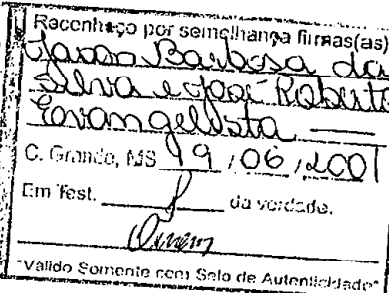 Reconheço por semelhança firmas(as)
Barbosa da
Silva e José Roberto
Evangelista —
C. Grande, MS 19/06/2001
Em Test. da verdade.
"Válido Somente com Selo de Autenticidade"